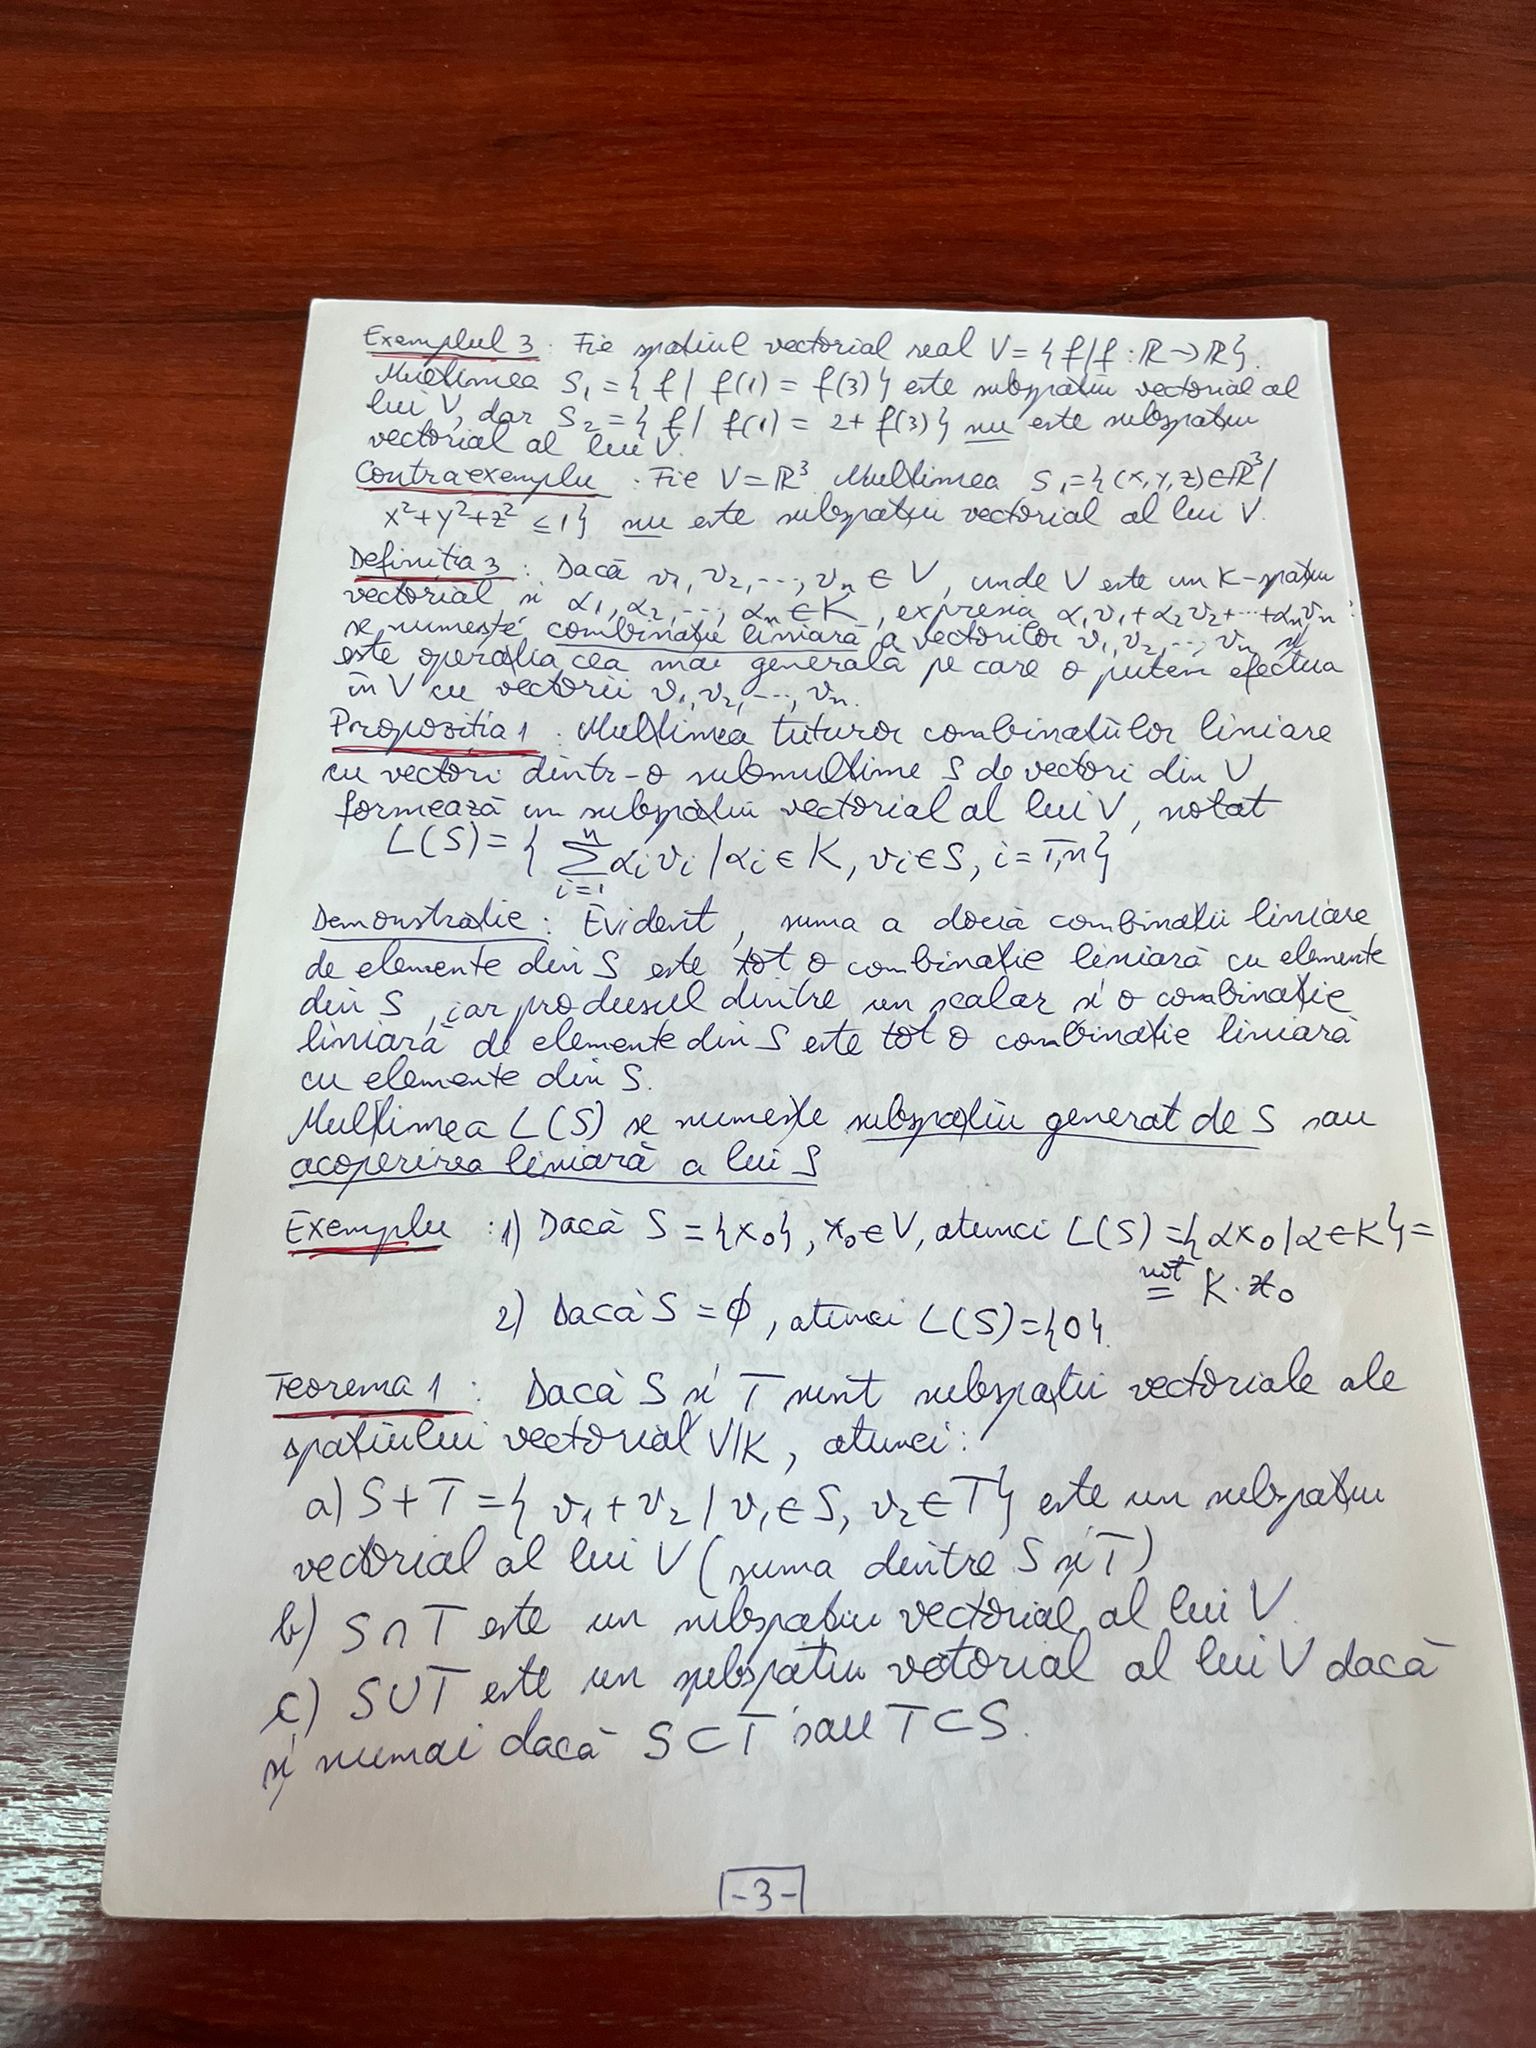 Exemplul 3 : Fie spațiul vectorial real V = { f / f : ℝ → ℝ }.
Mulțimea S₁ = { f / f(1) = f(3) } este subspațiu vectorial al
lui V, dar S₂ = { f / f(1) = 2 + f(3) } nu este subspațiu
vectorial al lui V.
Contraexemplu : Fie V = ℝ³. Mulțimea S₁ = { (x, y, z) ∈ ℝ³ /
x² + y² + z² ≤ 1 } nu este subspațiu vectorial al lui V.
Definiția 3 : Dacă v₁, v₂, ..., vₙ ∈ V, unde V este un K-spațiu
vectorial și α₁, α₂, ..., αₙ ∈ K, expresia α₁v₁ + α₂v₂ + ... + αₙvₙ
se numește combinație liniară a vectorilor v₁, v₂, ..., vₙ și
este operația cea mai generală pe care o putem efectua
în V cu vectorii v₁, v₂, ..., vₙ.
Propoziția 1 : Mulțimea tuturor combinațiilor liniare
cu vectori dintr-o submulțime S de vectori din V
formează un subspațiu vectorial al lui V, notat
L(S) = { ∑ᵢ₌₁ⁿ αᵢvᵢ / αᵢ ∈ K, vᵢ ∈ S, i = 1,n }
Demonstrație : Evident, suma a două combinații liniare
de elemente din S este tot o combinație liniară cu elemente
din S, iar produsul dintre un scalar și o combinație
liniară de elemente din S este tot o combinație liniară
cu elemente din S.
Mulțimea L(S) se numește subspațiu generat de S sau
acoperirea liniară a lui S
Exemplu : 1) Dacă S = {x₀}, x₀ ∈ V, atunci L(S) = { αx₀ / α ∈ K } =
not = K · x₀
2) Dacă S = ∅, atunci L(S) = {0}.
Teorema 1 : Dacă S și T sunt subspații vectoriale ale
spațiului vectorial V/K, atunci :
a) S + T = { v₁ + v₂ / v₁ ∈ S, v₂ ∈ T } este un subspațiu
vectorial al lui V (suma dintre S și T)
b) S ∩ T este un subspațiu vectorial al lui V.
c) S ∪ T este un subspațiu vectorial al lui V dacă
și numai dacă S ⊂ T sau T ⊂ S.
-3-